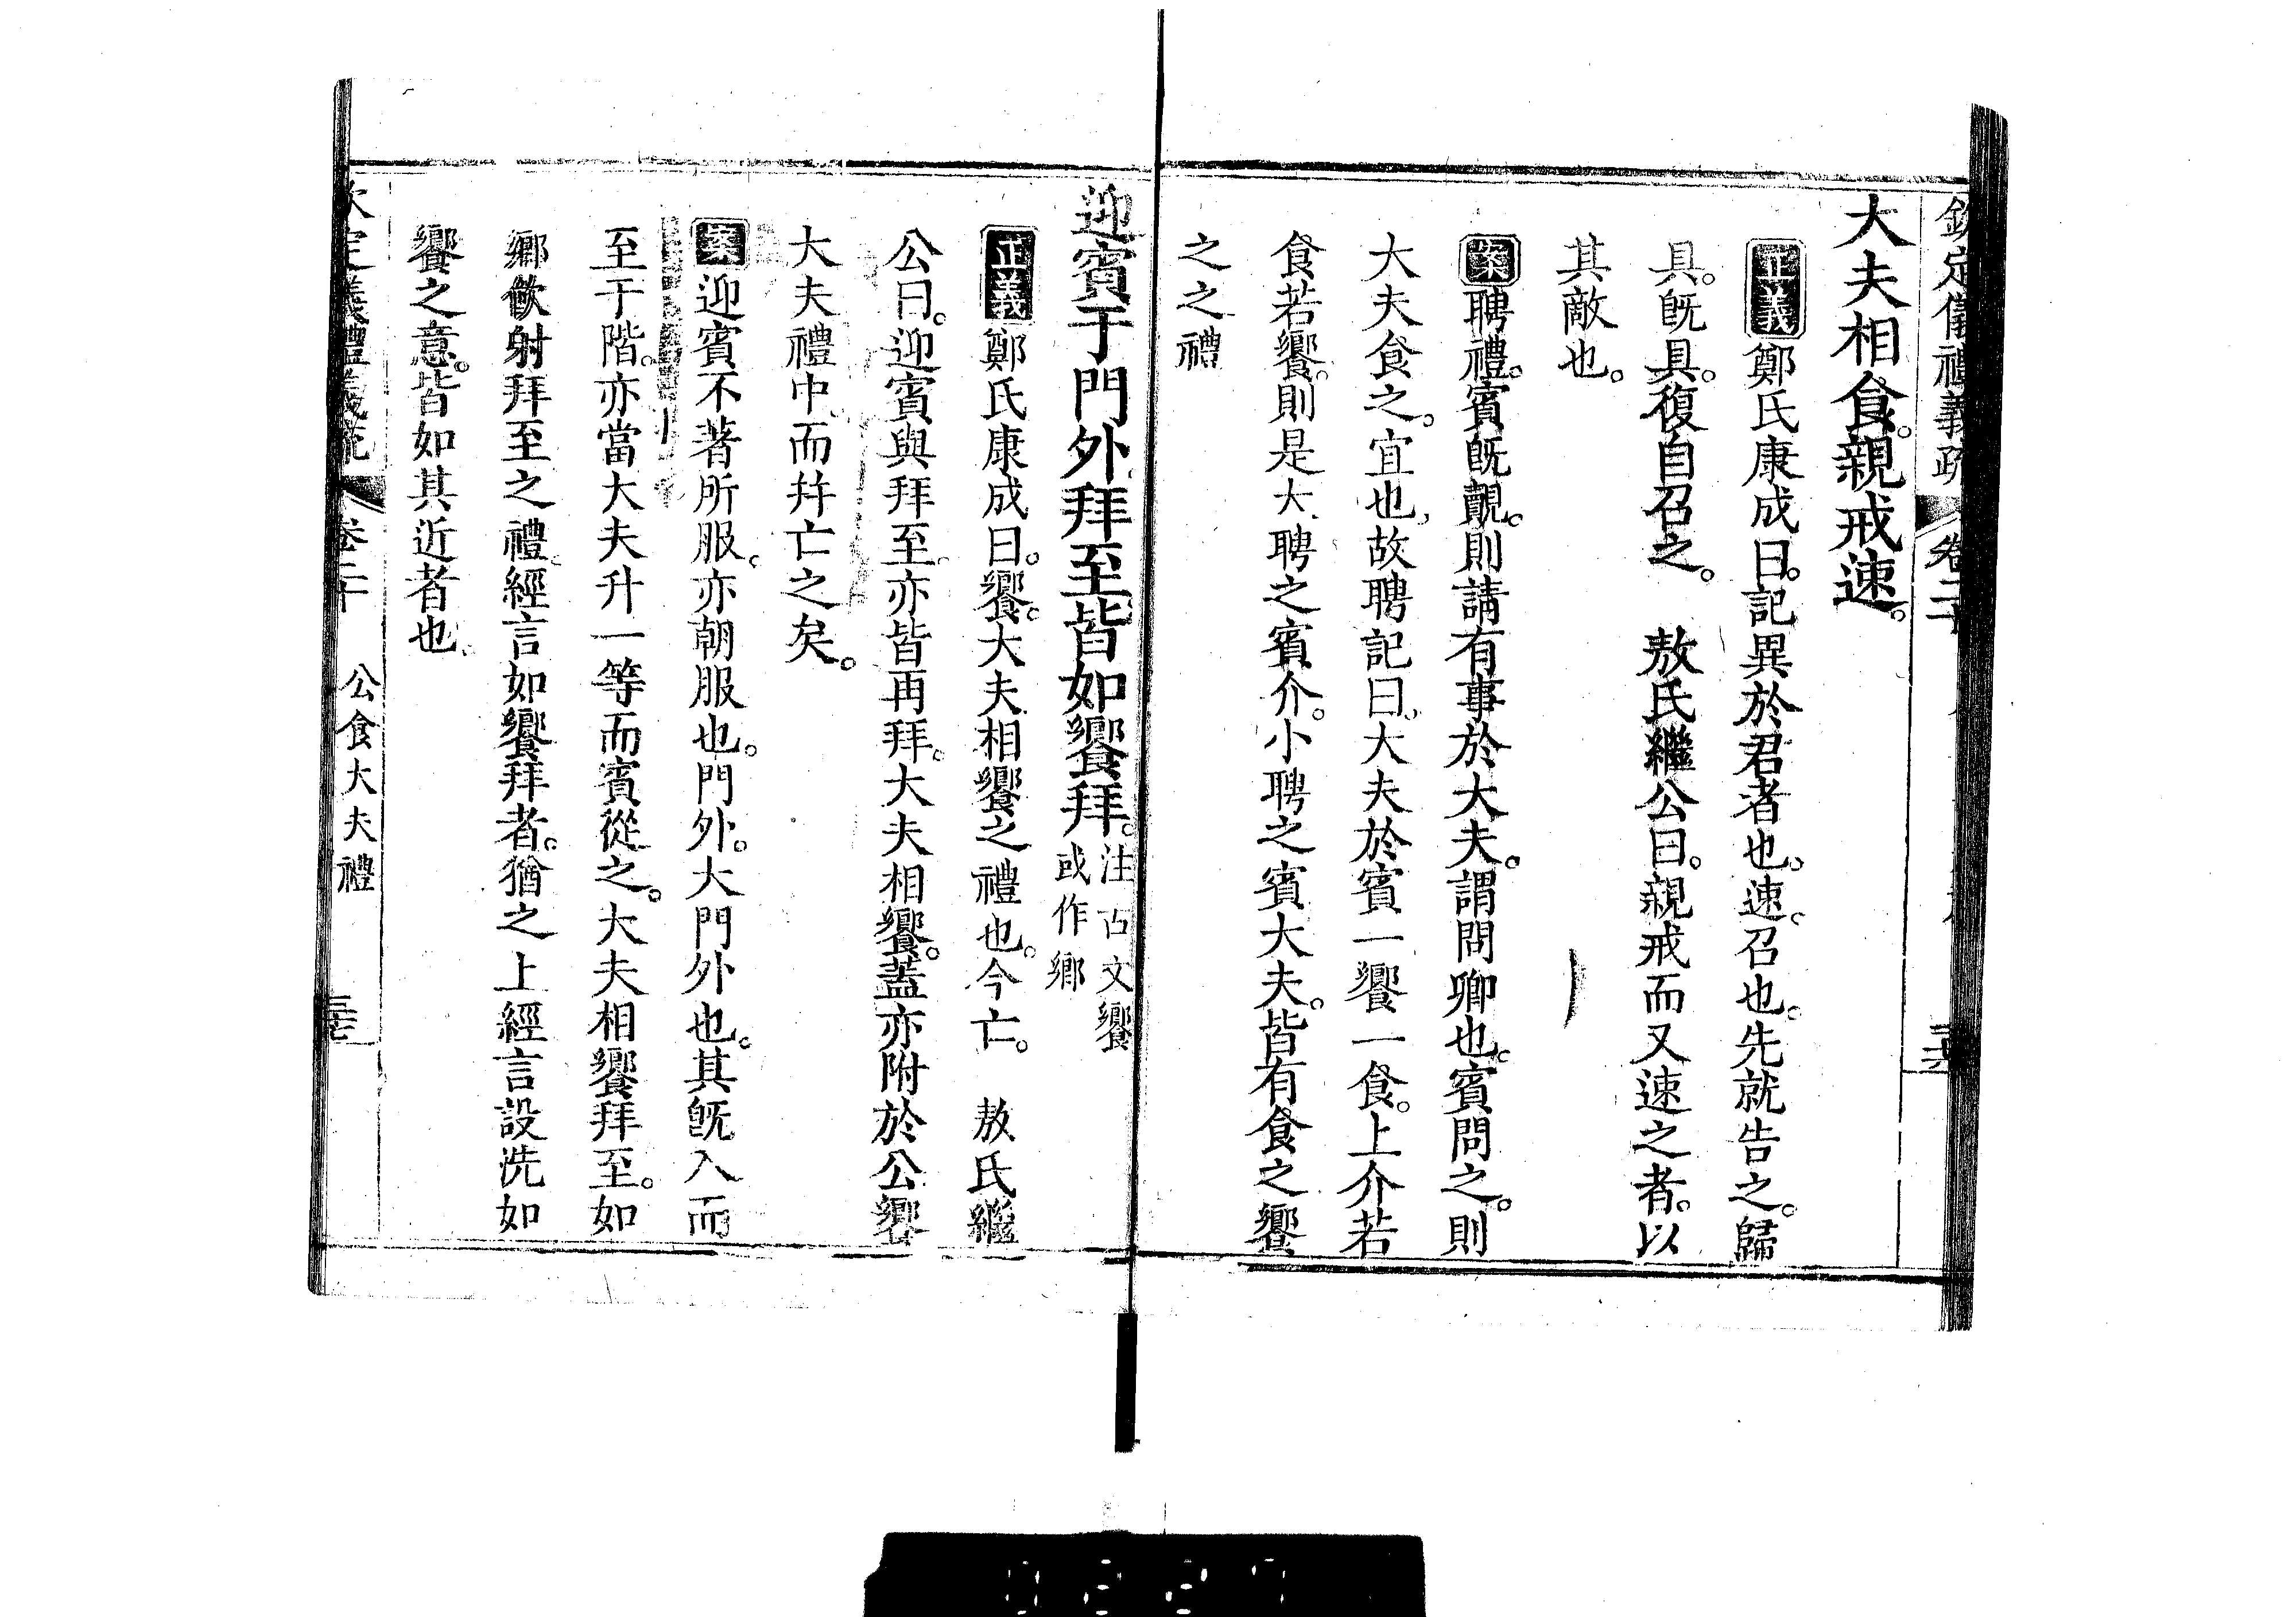 欽定儀禮義疏 卷二十
大夫相食。親戒速。
正義鄭氏康成曰。記異於君者也。速。召也。先就告之。歸
具。旣具。復自召之。 敖氏繼公曰。親戒而又速之者。以
其敵也。
案聘禮。賓旣覿。則請有事於大夫。謂問卿也。賓問之。則
大夫食之。宜也。故聘記曰。大夫於賓一饗一食。上介若
食若饗。則是大聘之賓介。小聘之賓大夫。皆有食之饗
之之禮
迎賓于門外。拜至。皆如饗拜。注古文饗
或作鄉
正義鄭氏康成曰。饗。大夫相饗之禮也。今亡。 敖氏繼
公曰。迎賓與拜至。亦皆再拜。大夫相饗。蓋亦附於公饗
大夫禮中。而幷亡之矣。
案迎賓不著所服。亦朝服也。門外。大門外也。其旣入而
至于階。亦當大夫升一等而賓從之。大夫相饗拜至。如
鄉飲射拜至之禮。經言如饗拜者。猶之上經言設洗如
饗之意。皆如其近者也。
欽定儀禮義疏 卷二十 公食大夫禮 三七